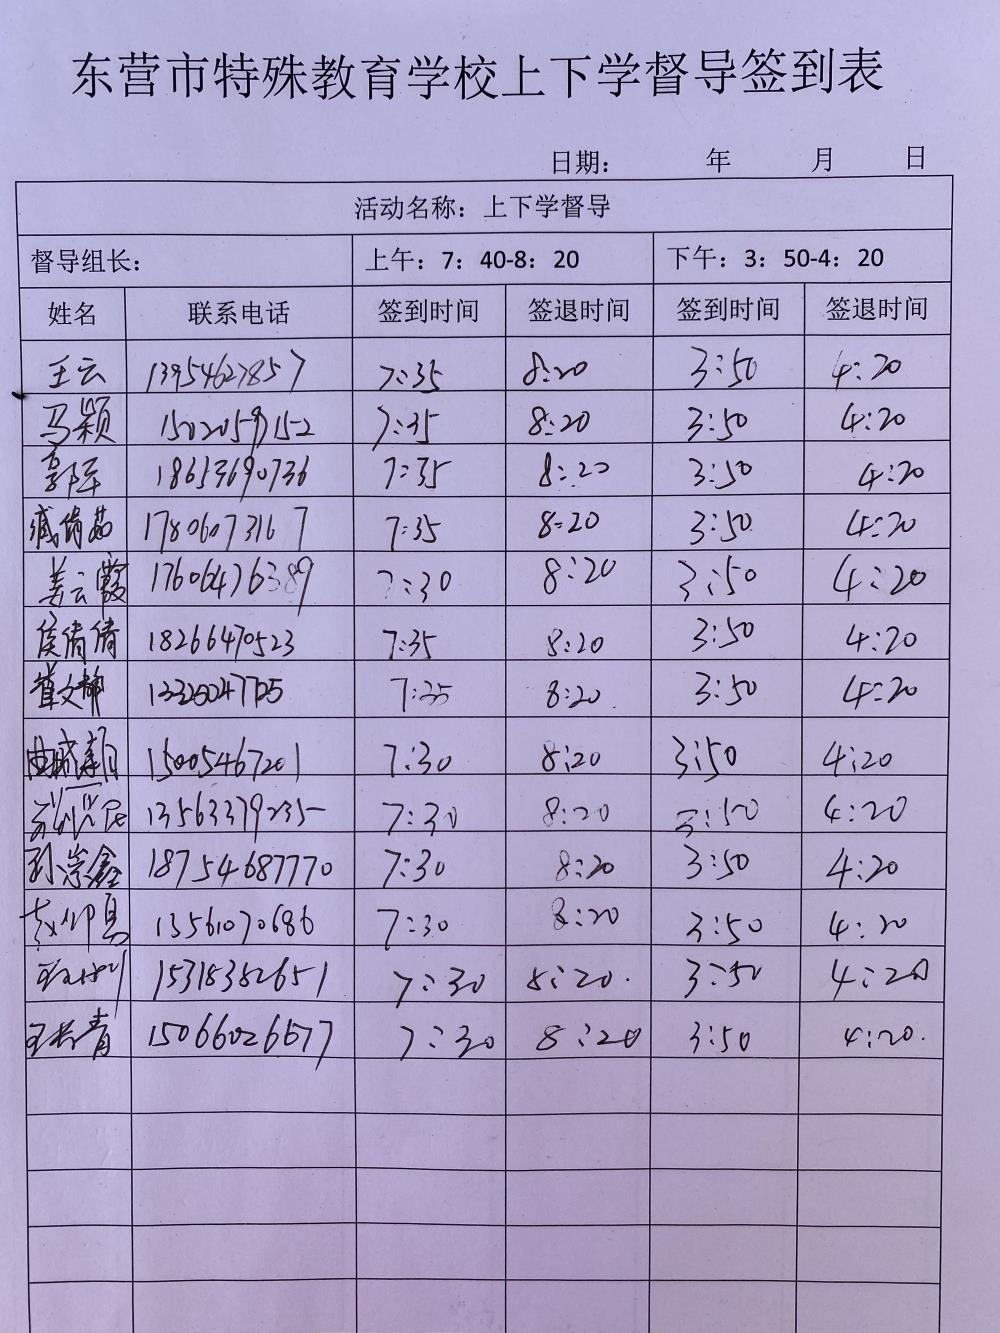 东营市特殊教育学校上下学督导签到表
日期: 年 月 日
活动名称：上下学督导
督导组长： 上午：7：40-8：20 下午：3：50-4：20
姓名 联系电话 签到时间 签退时间 签到时间 签退时间
王云 13954627857 7:35 8:20 3:50 4:20
马颖 15020579152 7:35 8:20 3:50 4:20
郭军 18653690736 7:35 8:20 3:50 4:20
臧倩茹 17806073167 7:35 8:20 3:50 4:20
姜云霞 17606476389 7:30 8:20 3:50 4:20
侯倩倩 18266470523 7:35 8:20 3:50 4:20
崔文静 7:35 8:20 3:50 4:20
曲 15005467201 7:30 8:20 3:50 4:20
13563379235 7:30 8:20 3:50 4:20
孙崇鑫 18754687770 7:30 8:20 3:50 4:20
赵 13561070686 7:30 8:20 3:50 4:20
15318382651 7:30 8:20. 3:50 4:20
王长青 15066026577 7:30 8:20 3:50 4:20.